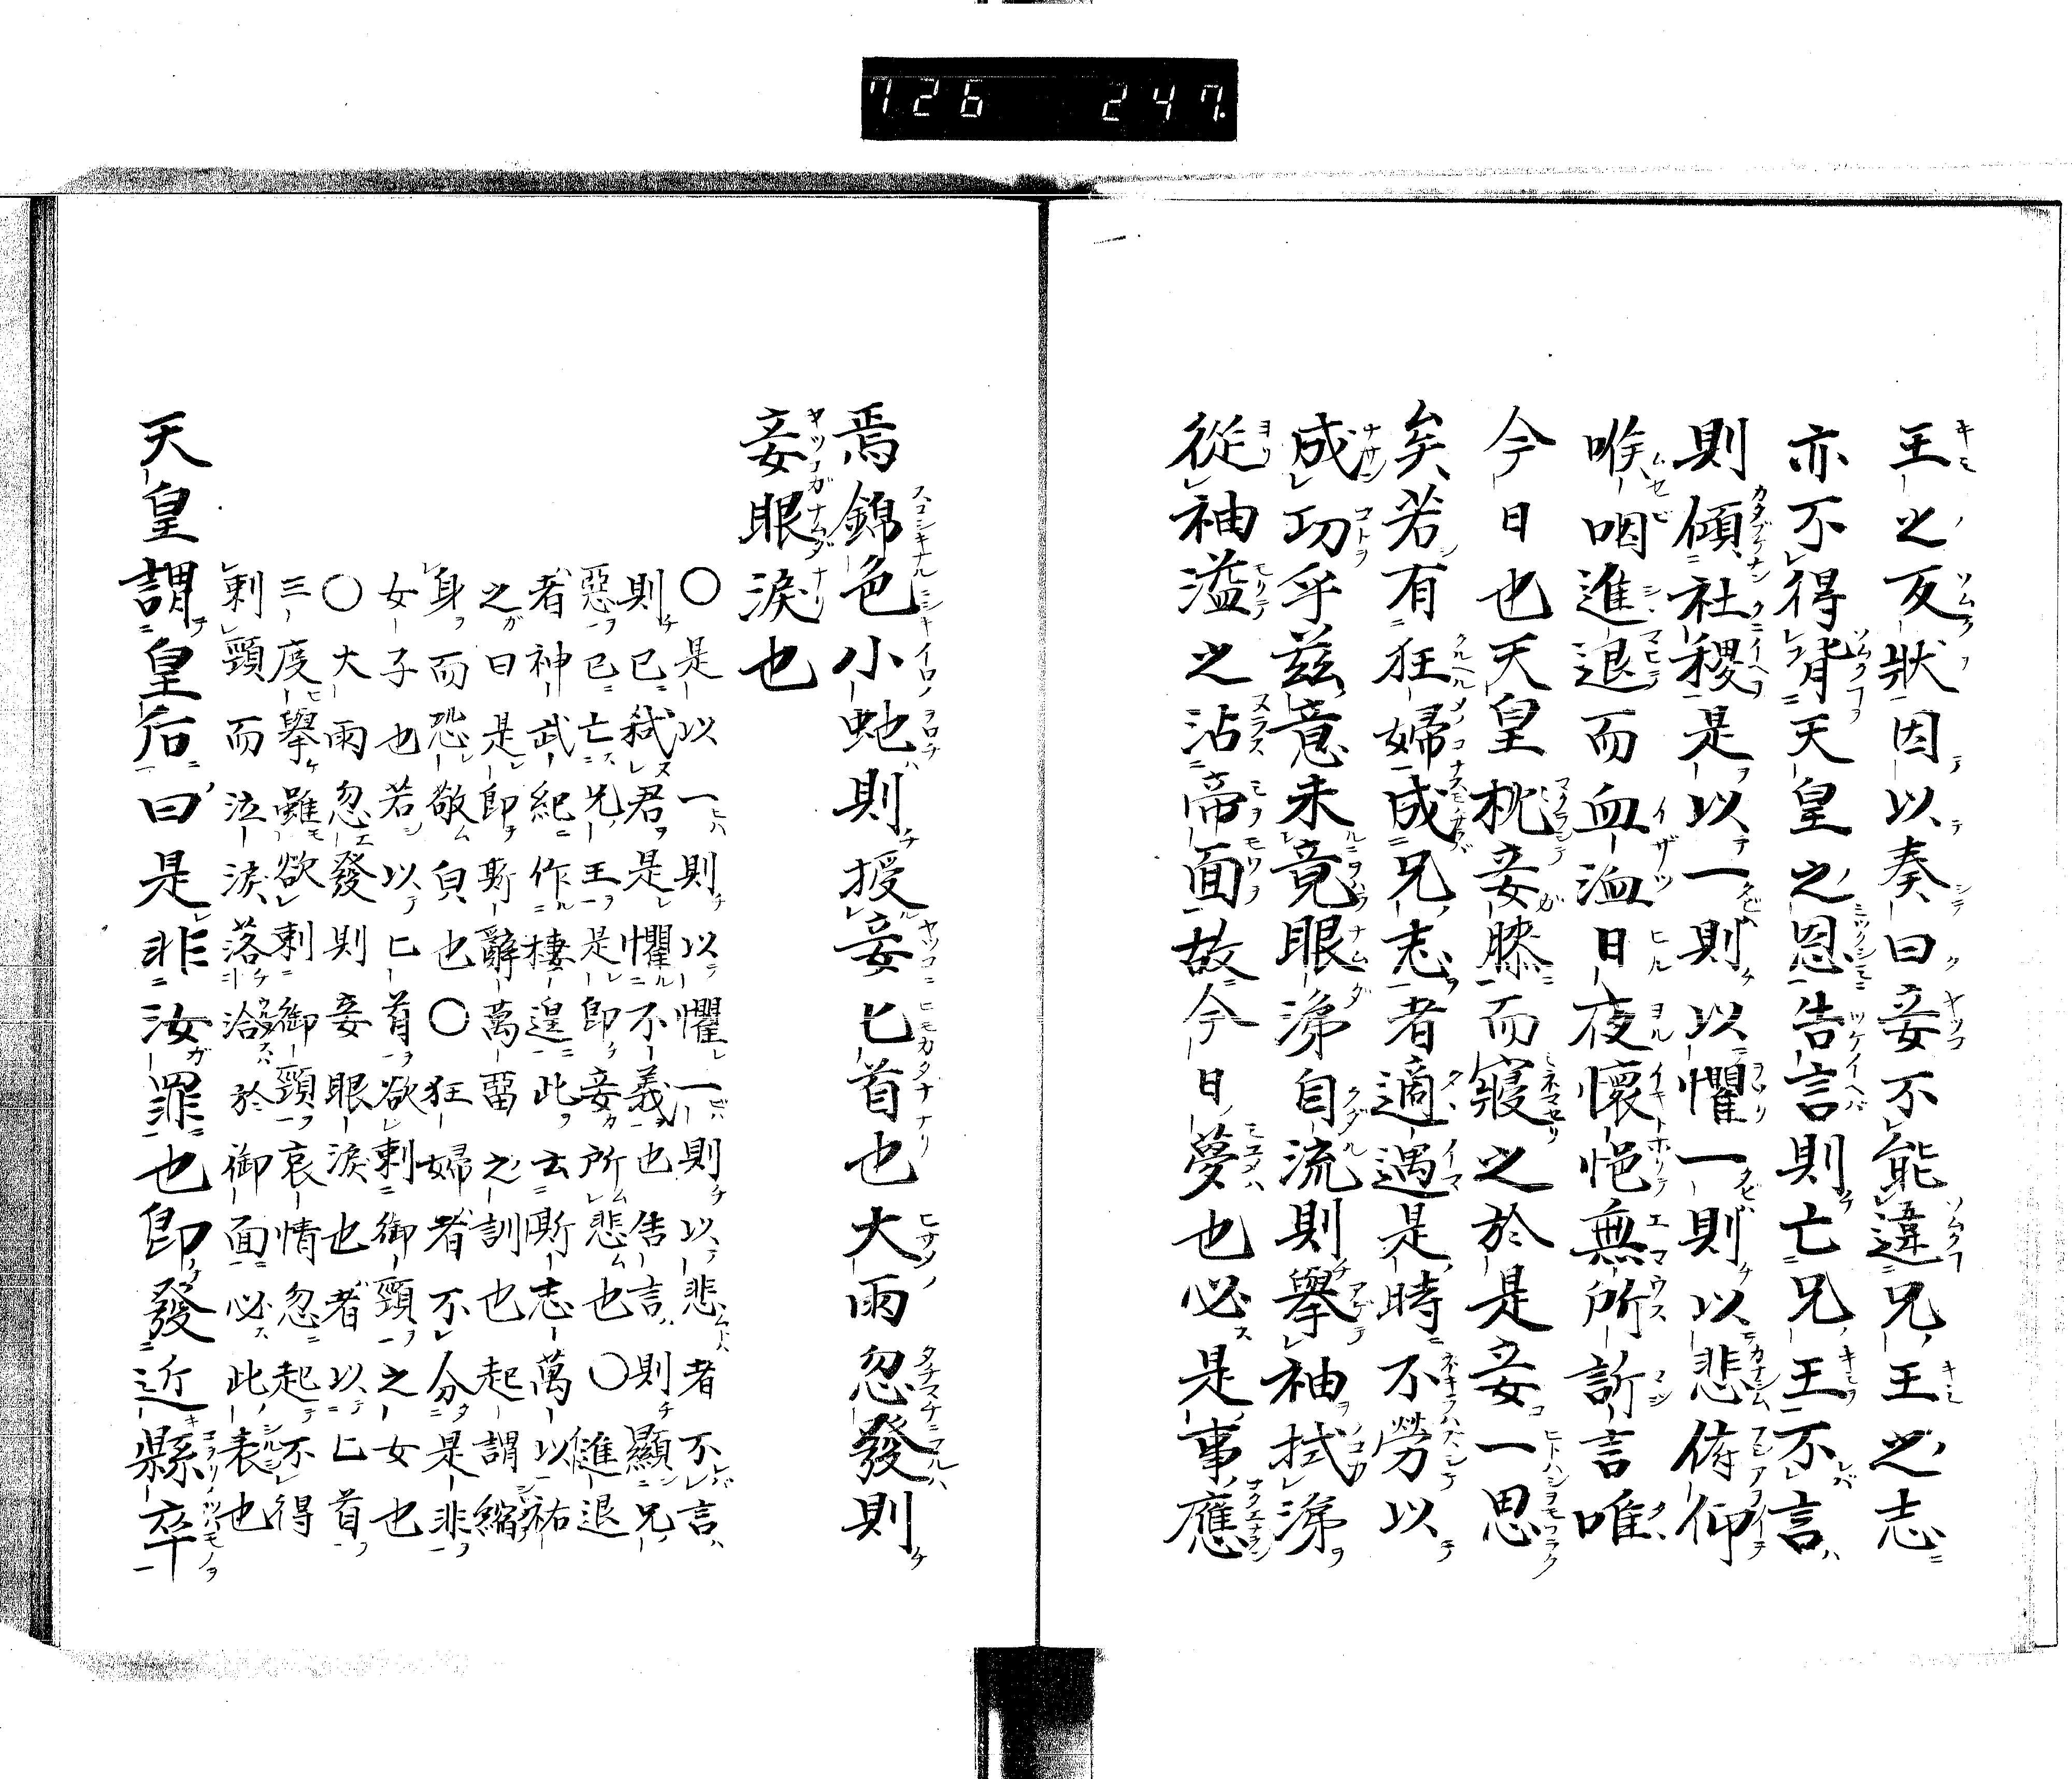 726 247.
王之反狀因以奏曰妾不能違兄王之志
亦不得背天皇之恩告言則亡兄王不言
則傾社稷是以一則以懼一則以悲俯仰
喉咽進退而血泣日夜懷悒無所訴言唯
今日也天皇枕妾膝而寢之於是妾一思
矣若有狂婦成兄志者適遇是時不勞以
成功乎茲意未竟眼涕自流則舉袖拭涕
從袖溢之沾帝面故今日夢也必是事應
焉錦色小虵則授妾匕首也大雨忽發則
妾眼淚也
〇是以一則以懼一則以悲者不言
則已弑君是懼不義也告言則顯兄
惡已亡兄王是即妾所悲也〇進退
者神武紀作棲遑此云斯志萬以祐
之曰是即斯辭萬畱之訓也起謂縮
身而恐敬皃也〇狂婦者不分是非
女子也若以匕首欲刺御頸之女也
〇大雨忽發則妾眼淚也者以匕首
三度舉雖欲刺御頸哀情忽起不得
刺頸而泣淚落沾於御面必此表也
天皇謂皇后曰是非汝罪也即發近縣卒